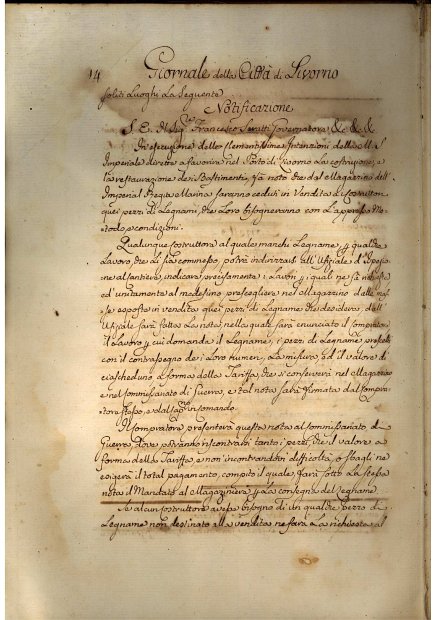 14 Giornale della Città di Livorno
soliti Luoghi La Seguente
Notificazione
S. E. Il Sig.re Francesco Seratti Governatore &c &c &c
In esecuzione delle Clementissime Intenzioni della M. S.
Imperiale dirette a favorire nel Porto di Livorno La costruzione, e
La restaurazione dei Bastimenti, fà noto che dal Magazzino dell'
Imperial Regia Marina saranno ceduti in Vendita ai costruttori
quei pezzi di Legnami, che Loro bisogneranno con L'appresso Me
todo, e condizioni.
Qualunque costruttore al quale manchi Legname p qualche
Lavoro che Li sia commesso, potrà indirizzarsi all'Ufiziale d'Ispezio
ne al cantiere, indicare precisamente i Lavori p i quali ne fà
ed unitamente al medesimo prescegliere nel Magazzino delle
se esposte in vendita quei pezzi di Legname che desidera, dall'
Ufiziale sarà fatta La nota, nella quale sarà enunciato il compratore,
il Lavoro p cui domanda il Legname, i pezzi di Legname prescelti
con il contrassegno dei Loro numeri, La misura, ed il valore di
ciascheduno a forma della Tariffa, che si conserverà nel Magazzino
e nel commissariato di Guerra, e tal nota sarà firmata dal Compra
tore stesso, e dal in comando.
Il compratore presenterà questa nota al commissariato di
Guerra dove potranno riscontrarsi tanto i pezzi, che il valore a
forma della Tariffa, e non incontrandovi difficoltà, o sbagli ne
esigerà il total pagamento, compito il quale farà sotto La stessa
nota il Mandato al Magazziniere p La consegna del Legname
Se alcun costruttore avesse bisogno di un qualche pezzo di
Legname non destinato alla vendita ne farà La richiesta al